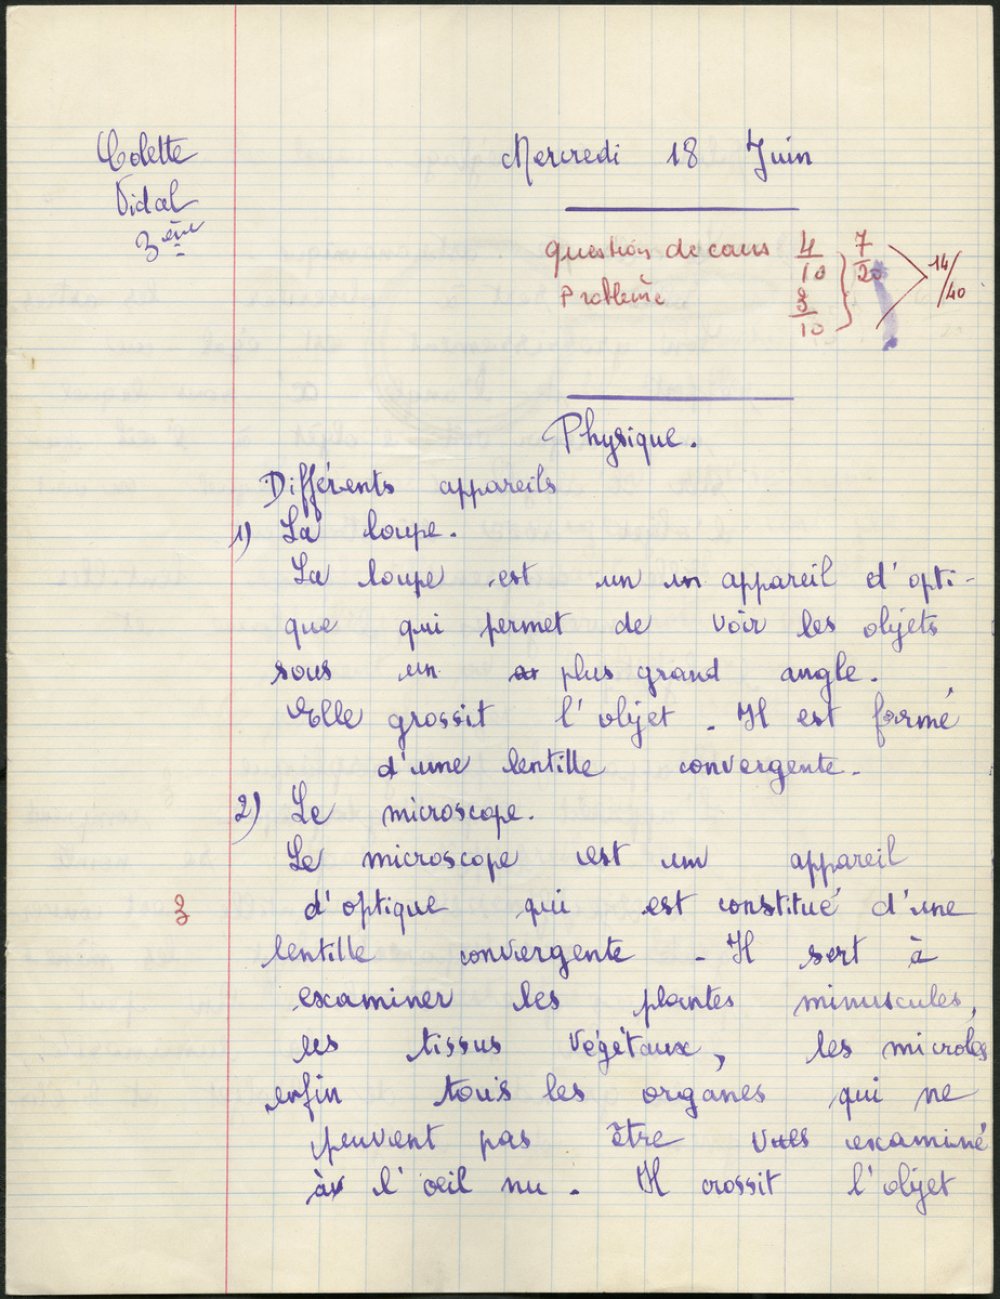 Colette
Vidal
3ème
Mercredi 18 Juin
Question de cours 4/10
7/20
14/40
Problème 3/10
Physique.
Différents appareils
1) La loupe.
La loupe est un un appareil d'opti-
que qui permet de voir les objets
sous un plus grand angle.
Elle grossit l'objet. Il est formé
d'une lentille convergente.
2) Le microscope.
Le microscope est un appareil
3
d'optique qui est constitué d'une
lentille convergente. Il sert à
examiner les plantes minuscules,
les tissus végétaux, les microbes
enfin tous les organes qui ne
peuvent pas être vues examiné
à l'oeil nu. Il crossit l'objet